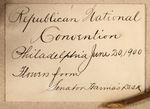 Republican National
Convention
Philadelphia June 20, 1900
Flowers from
Senator Hanna's Desk